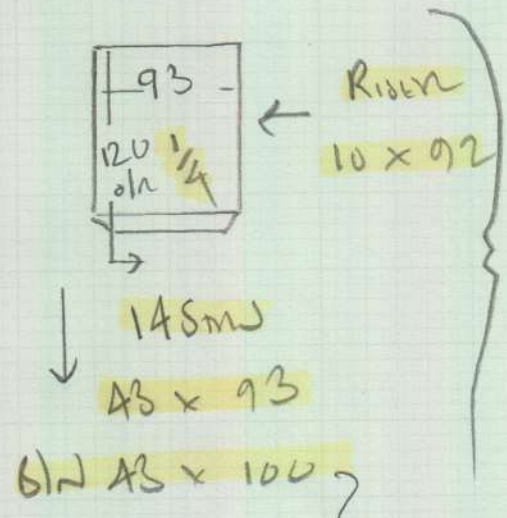 93
120
o/r
1/4
RISER
10 x 92
145mm
43 x 93
B/N 43 x 100